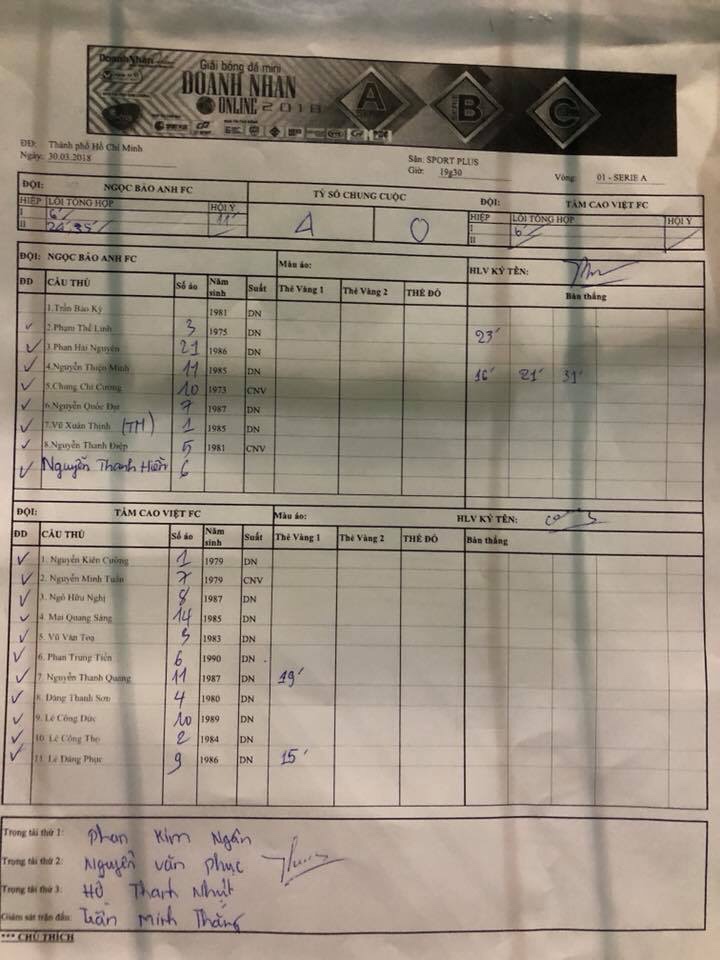 DoanhNhân
Giải bóng đá mini
DOANH NHÂN
ONLINE 2018
A B C
ĐĐ: Thành phố Hồ Chí Minh
Ngày: 30.03.2018
Sân: SPORT PLUS
Giờ: 19g30
Vòng: 01 - SERIE A
ĐỘI: NGỌC BẢO ANH FC TỶ SỐ CHUNG CUỘC ĐỘI: TẦM CAO VIỆT FC
HIỆP LỖI TỔNG HỢP HỘI Ý 4 0 HIỆP LỖI TỔNG HỢP HỘI Ý
I 6' 11' I 6'
II 24' 35' II
ĐỘI: NGỌC BẢO ANH FC Màu áo: HLV KÝ TÊN:
ĐD CẦU THỦ Số áo Năm sinh Suất Thẻ Vàng 1 Thẻ Vàng 2 THẺ ĐỎ Bàn thắng
1.Trần Bảo Kỳ 1981 DN
✓ 2.Phạm Thế Linh 3 1975 DN 23'
✓ 3.Phan Hải Nguyên 21 1986 DN
✓ 4.Nguyễn Thiện Minh 11 1985 DN 16' 21' 31'
✓ 5.Chung Chí Cường 10 1973 CNV
✓ 6.Nguyễn Quốc Đạt 7 1987 DN
✓ 7.Vũ Xuân Thịnh (TM) 1 1985 DN
✓ 8.Nguyễn Thanh Điệp 5 1981 CNV
✓ Nguyễn Thanh Hiền 6
ĐỘI: TẦM CAO VIỆT FC Màu áo: HLV KÝ TÊN:
ĐD CẦU THỦ Số áo Năm sinh Suất Thẻ Vàng 1 Thẻ Vàng 2 THẺ ĐỎ Bàn thắng
✓ 1. Nguyễn Kiên Cường 1 1979 DN
✓ 2. Nguyễn Minh Tuấn 7 1979 CNV
✓ 3. Ngô Hữu Nghị 8 1987 DN
✓ 4. Mai Quang Sáng 14 1985 DN
✓ 5. Vũ Văn Toạ 3 1983 DN
✓ 6. Phan Trung Tiến 6 1990 DN
✓ 7. Nguyễn Thanh Quang 11 1987 DN 19'
✓ 8. Đặng Thanh Sơn 4 1980 DN
✓ 9. Lê Công Đức 10 1989 DN
✓ 10. Lê Công Thọ 2 1984 DN
✓ 11. Lê Đăng Phục 9 1986 DN 15'
Trọng tài thứ 1: Phan Kim Ngân
Trọng tài thứ 2: Nguyễn Văn Phục
Trọng tài thứ 3: Hồ Thanh Nhựt
Giám sát trận đấu: Trần Minh Thắng
*** CHÚ THÍCH